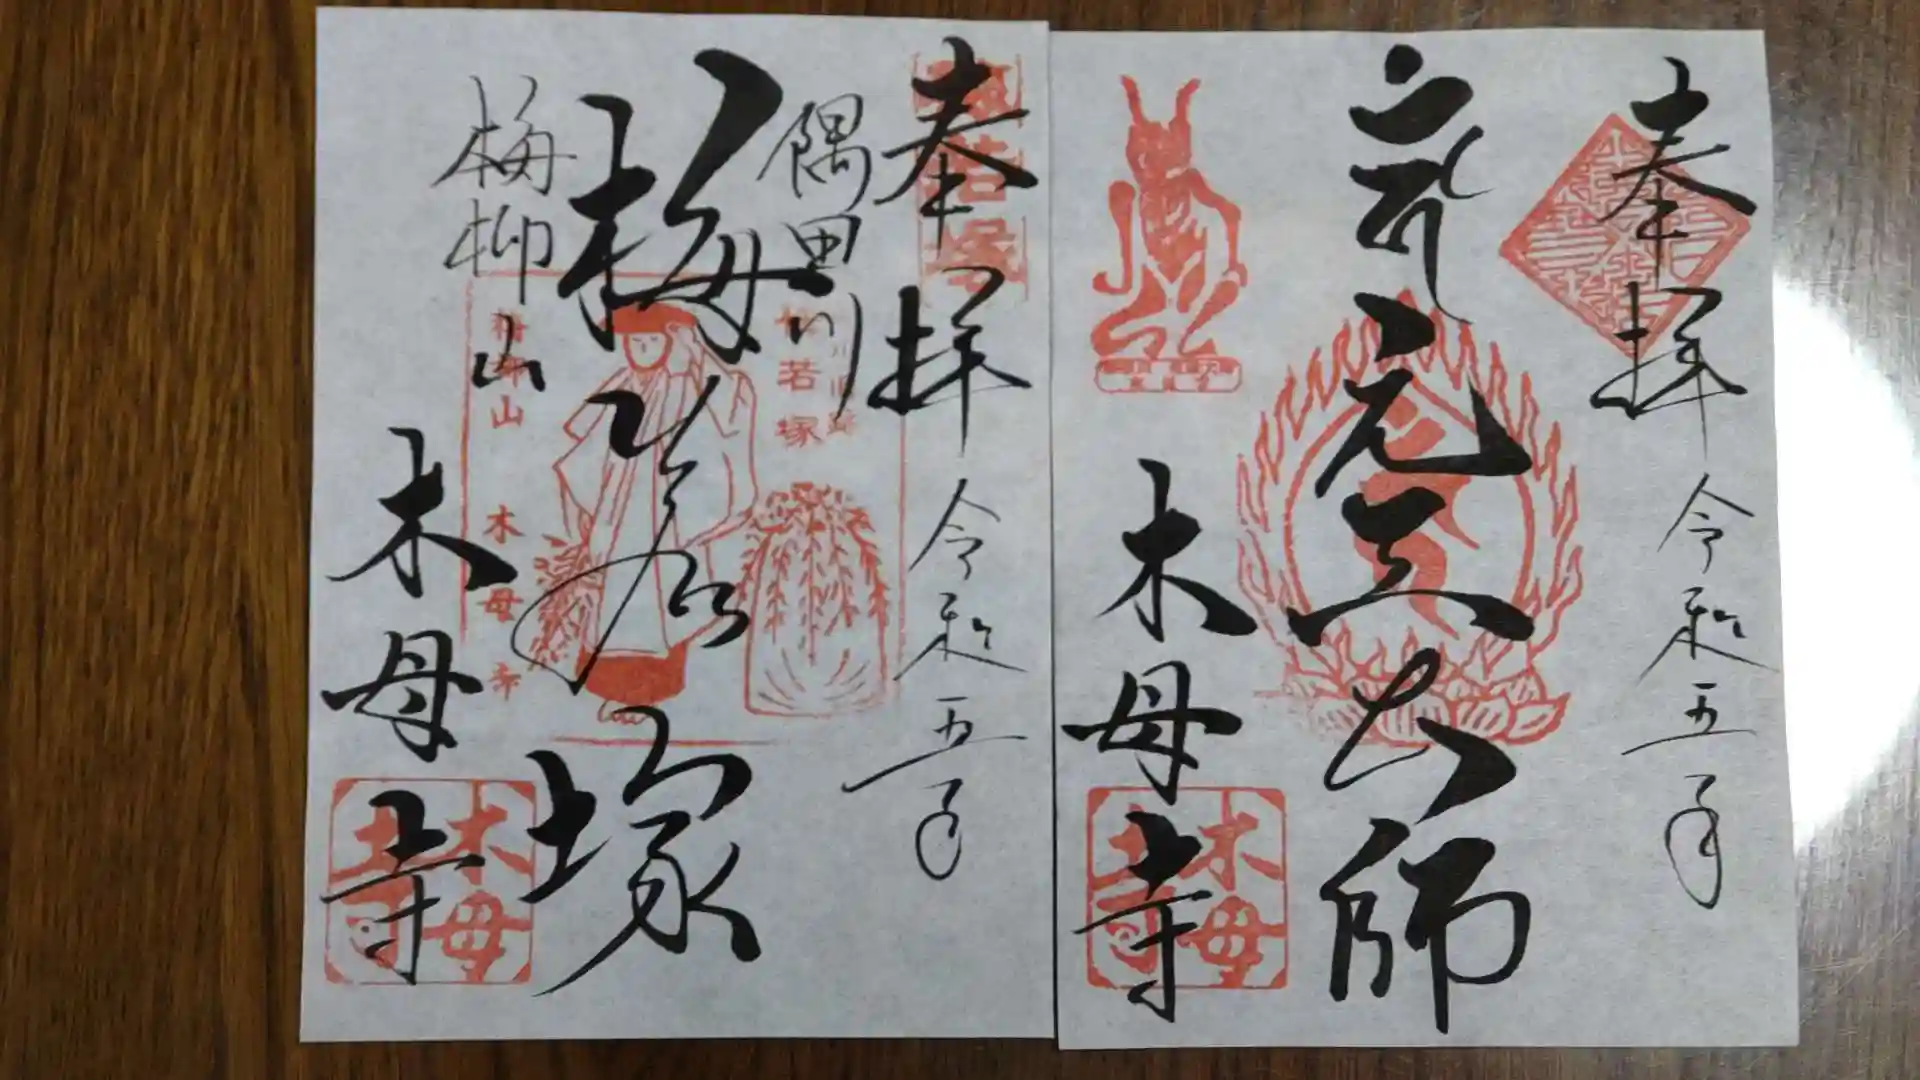 奉拝
令和五年
元三大師
木母寺
木母寺
奉拝
令和五年
隅田川
梅若塚
若塚
梅柳山
山
木母寺
木母寺
木母寺